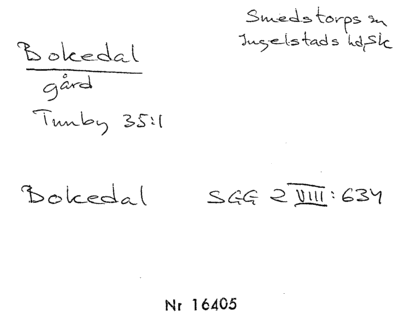 Smedstorps sn
Ingelstads hd, Sk
Bokedal
gård
Tunby 35:1
Bokedal SGG 2 VIII: 634
Nr 16405